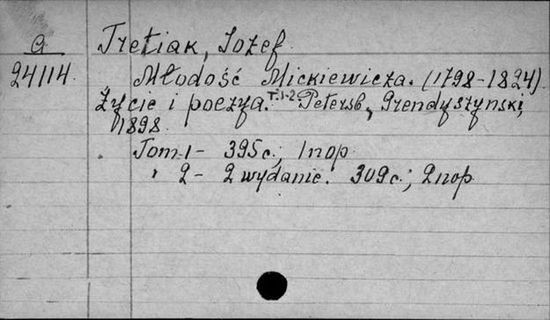 a
Tretiak, Jozef.
24114. Młodość Mickiewicza. (1798-1824).
Życie i poezya. T.1-2 Petersb., Grendyszyński,
1898.
Tom 1 - 395 c.; 1 пор.
" 2 - 2 wydanie. 309 c.; 2 пор.